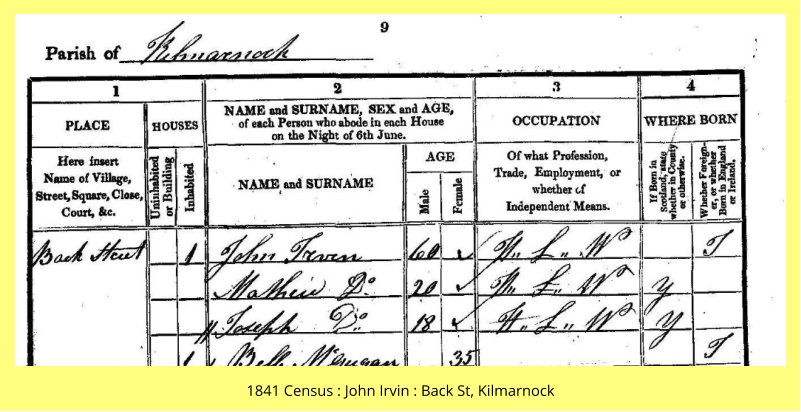 9
Parish of Kilmarnock
1 2 3 4
PLACE
Here insert
Name of Village,
Street, Square, Close,
Court, &c.
HOUSES
Uninhabited
or Building
Inhabited
NAME and SURNAME, SEX and AGE,
of each Person who abode in each House
on the Night of 6th June.
NAME and SURNAME
AGE
Male
Female
OCCUPATION
Of what Profession,
Trade, Employment, or
whether of
Independent Means.
WHERE BORN
If Born in
Scotland, state
whether in County
or otherwise.
Whether Foreign-
er, or whether
Born in England
or Ireland.
Back Street 1 John Irvin 60 H. L. W I
Mathew Do 20 H. L. W Y
Joseph Do 18 H. L. W Y
1 Bell 35 I
1841 Census : John Irvin : Back St, Kilmarnock